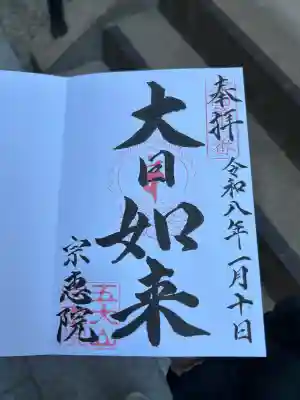 奉拝
令和八年一月十日
大日如来
宗恵院
五大山